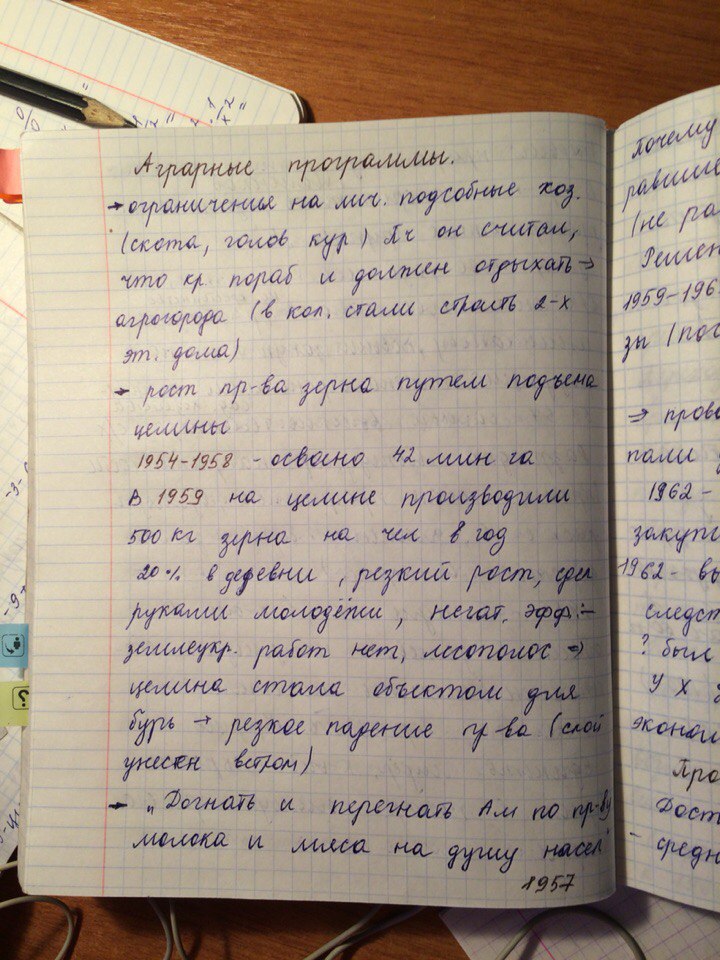 Аграрные программы.
→ ограничение на лич. подсобные хоз.
(скота, голов кур) Пч он считал,
что кр. пораб и должен отдыхать →
агрогорода (в кол. стали строить 2-х
эт. дома)
→ рост пр-ва зерна путем подъема
целины
1954-1958 - освоено 42 млн га
В 1959 на целине производили
500 кг зерна на чел в год
20% в деревни, резкий рост, сдел
руками молодёжи, негат. эфф.:-
землеукр. работ нет, лесополос ⇒
целина стала объектом для
бурь → резкое падение пр-ва (слой
унесен ветром)
→ "Догнать и перегнать Ам по пр-ву
молока и мяса на душу насел"
1957
почему
равшие
(не ра
Решен
1959-196
зы (пос
⇒ прово
пали
1962 -
закупи
1962 - вы
следст
? был
У Х
эконом
Про
Дост
- средн